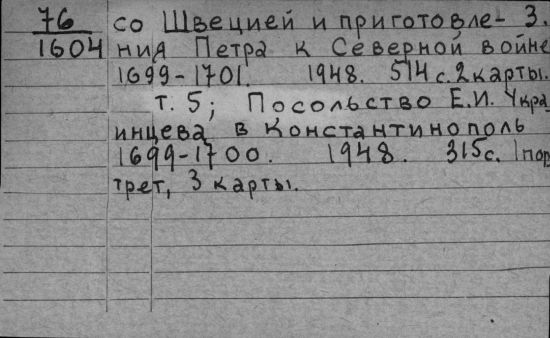 76 со Швецией и приготовле- 3.
1604 ния Петра к Северной войне
1699-1701. 1948. 514 с. 2 карты.
т. 5; Посольство Е.И. Укра
инцева в Константинополь
1699-1700. 1948. 315 с. 1 пор
трет, 3 карты.